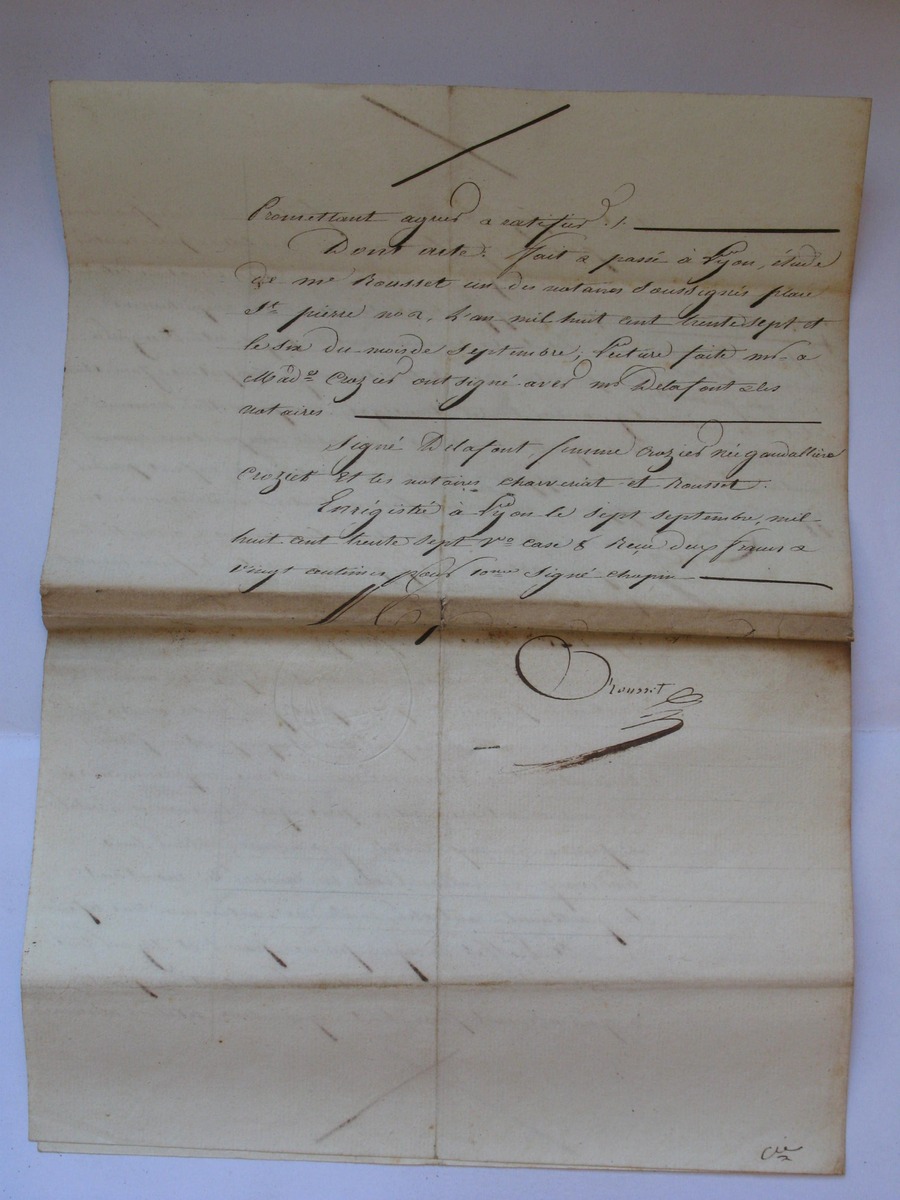 Promettant agréer & ratifier ./.
Dont acte. Fait & passé à Lyon, étude
de me Rousset un des notaires Soussignés place
St. pierre no 2, L'an mil huit cent trente sept et
le six du mois de Septembre, Lecture faite mr &
Made Crozier ont signé avec mr Delafont & les
notaires.
Signé Delafont, femme Crozier née gaudallière
Crozier Et les notaires charvériat et Rousset.
Enrégistré à Lyon le sept septembre, mil
huit cent trente sept Vo case 8 Reçu deux francs &
vingt centimes pour 10me Signé chapin
Rousset